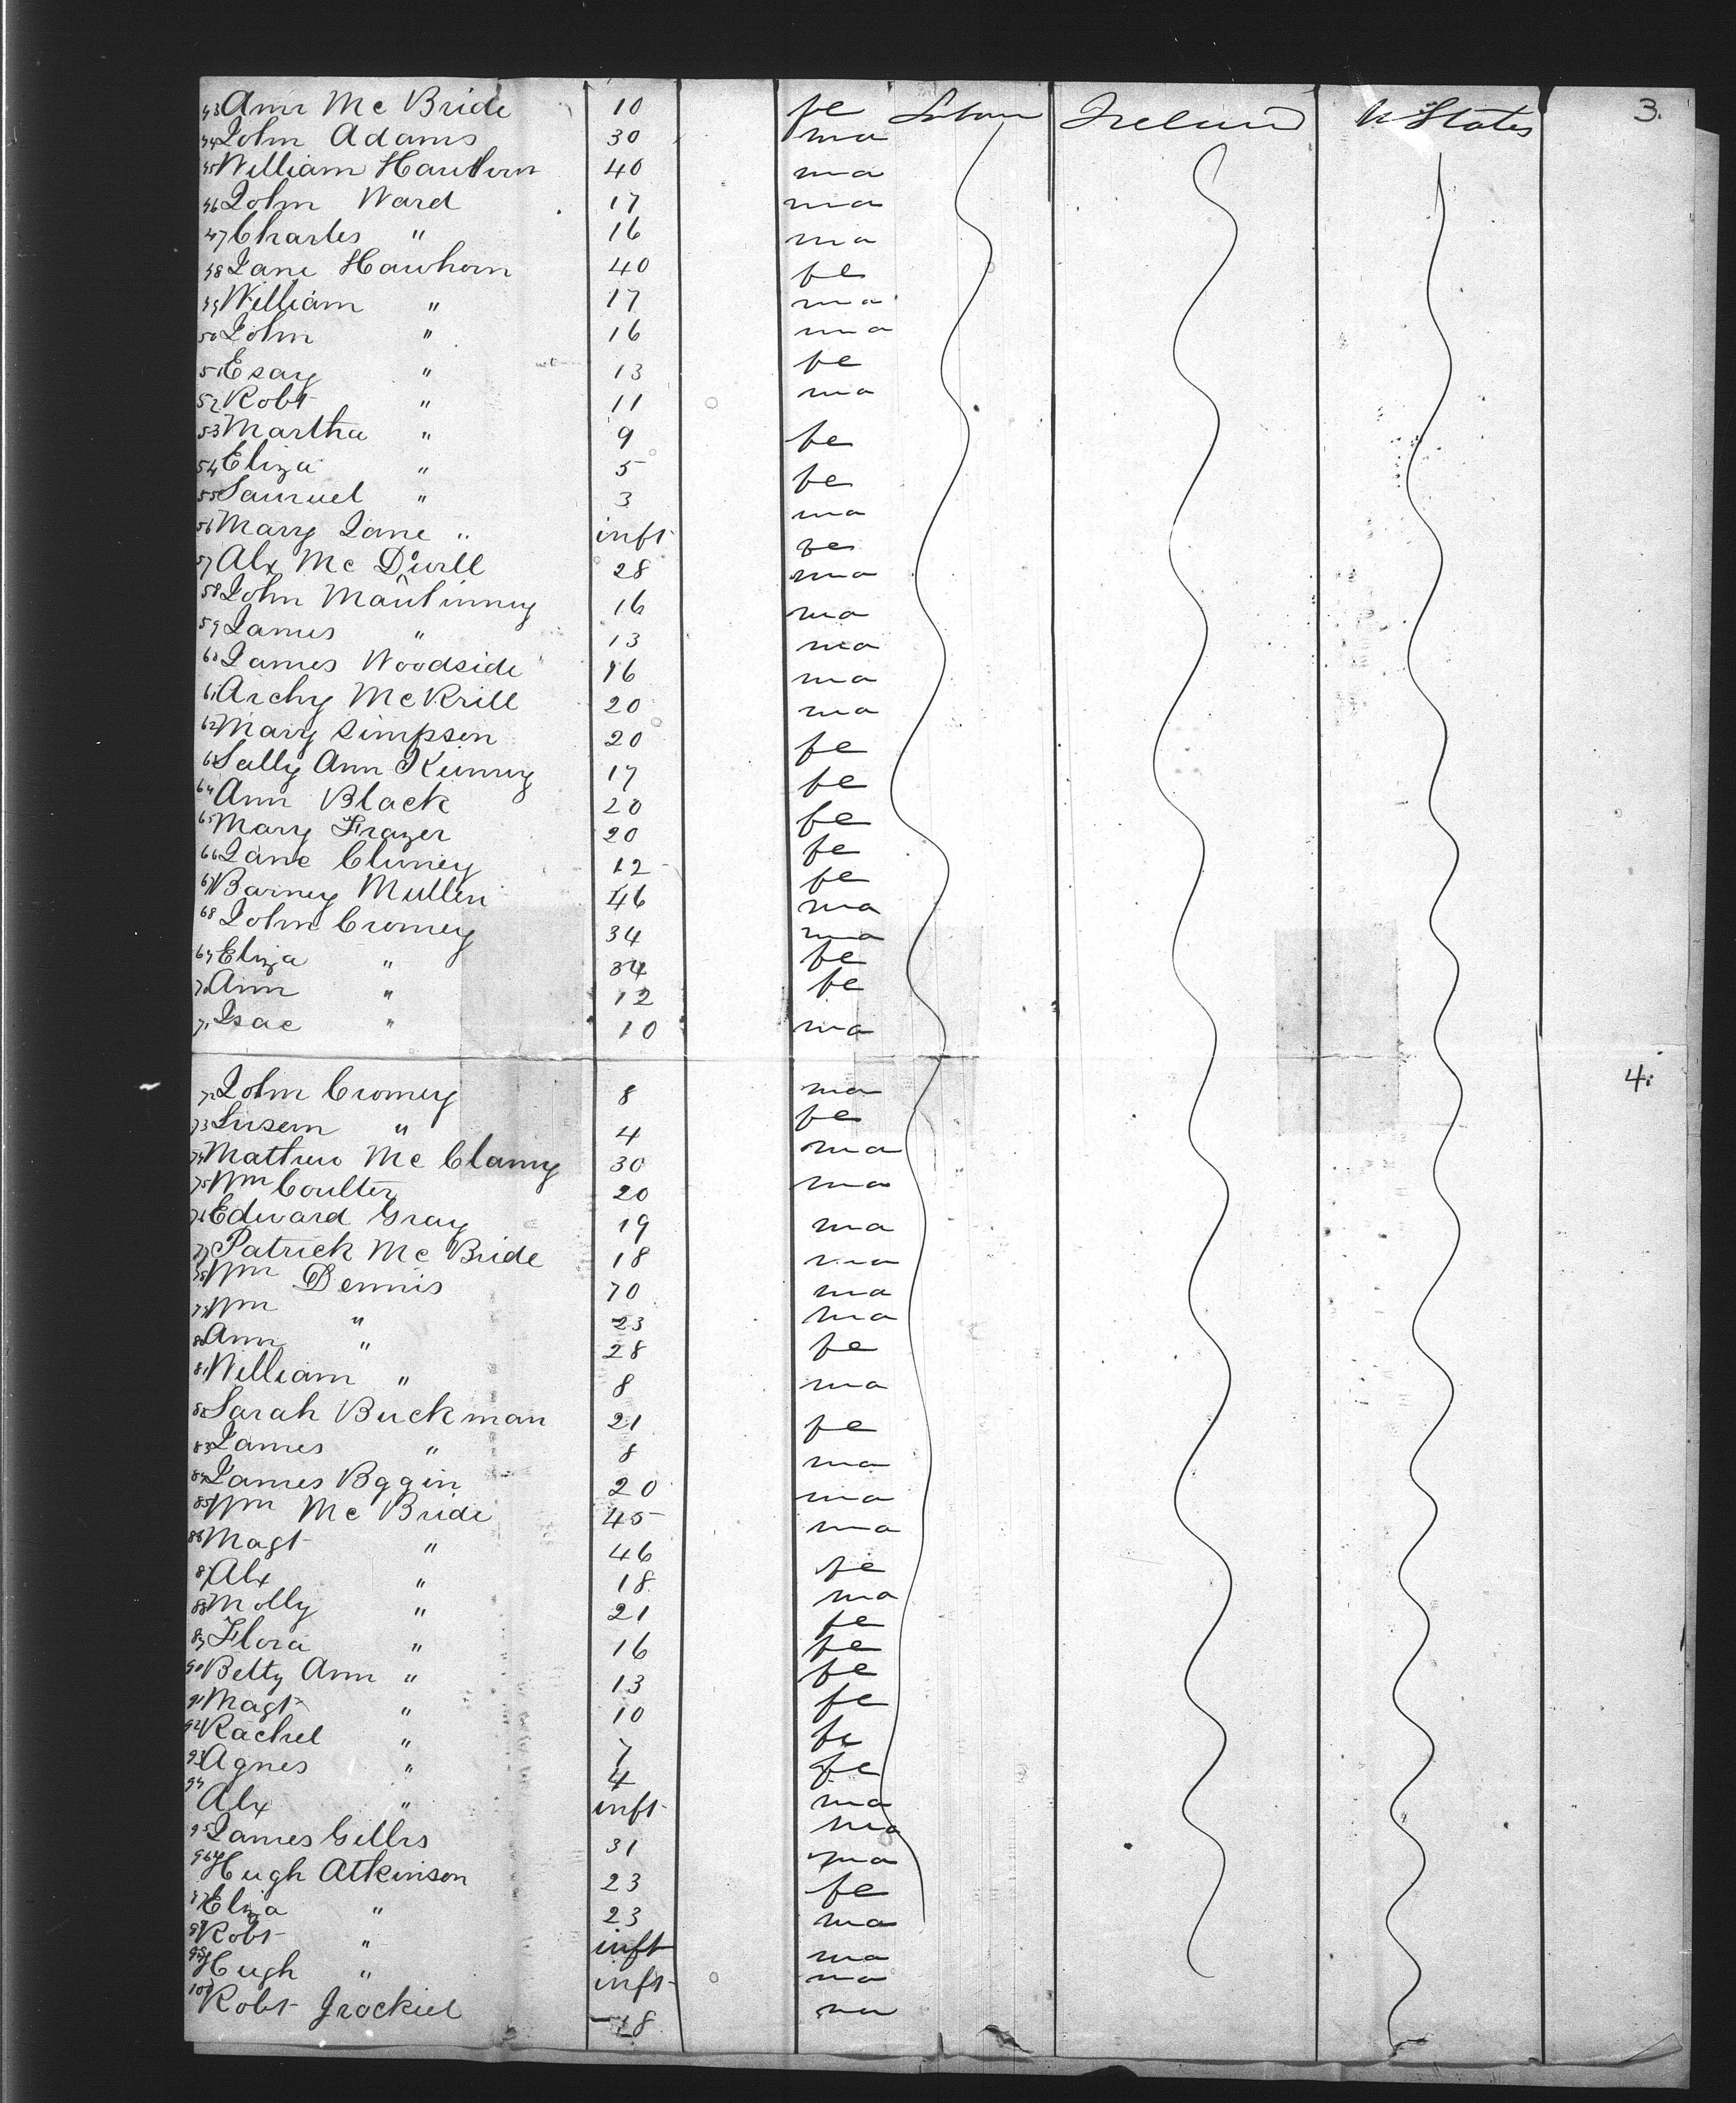 43 Ann Mc Bride 10 fe Labour Ireland U States 3.
44 John Adams 30 ma
45 William Hauthorn 40 ma
46 John Ward 17 ma
47 Charles " 16 ma
48 Jane Hawhorn 40 fe
49 William " 17 ma
50 John " 16 ma
51 Esay " 13 fe
52 Robt " 11 ma
53 Martha " 9 fe
54 Eliza " 5 fe
55 Samuel " 3 ma
56 Mary Jane " inft fe
57 Alx Mc Dowll 28 ma
58 John 16 ma
59 James " 13 ma
60 James Woodside 16 ma
61 Archy McKrill 20 ma
62 Mary Simpson 20 fe
63 Sally Ann Kinney 17 fe
64 Ann Black 20 fe
65 Mary Frazer 20 fe
66 Jane Cluney 12 fe
67 Barney Mullen 46 ma
68 John Cromey 34 ma
69 Eliza " 34 fe
70 Ann " 12 fe
71 Isac " 10 ma
72 John Cromey 8 ma 4.
73 Susan " 4 fe
74 Mathew Mc Clanny 30 ma
75 Wm Coulter 20 ma
76 Edward Gray 19 ma
77 Patrick Mc Bride 18 ma
78 Wm Dennis 70 ma
79 Wm " 23 ma
80 Ann " 28 fe
81 William " 8 ma
82 Sarah Buckman 21 fe
83 James " 8 ma
84 James Bggin 20 ma
85 Wm Mc Bride 45 ma
86 Magt " 46 fe
87 Alx " 18 ma
88 Molly " 21 fe
89 Flora " 16 fe
90 Betty Ann " 13 fe
91 Magt " 10 fe
92 Rachel " 7 fe
93 Agnes " 4 fe
94 Alx " inft ma
95 James Gillis 31 ma
96 Hugh Atkinson 23 ma
97 Eliza " 23 fe
98 Robt " inft ma
99 Hugh " inft ma
100 Robt 18 ma